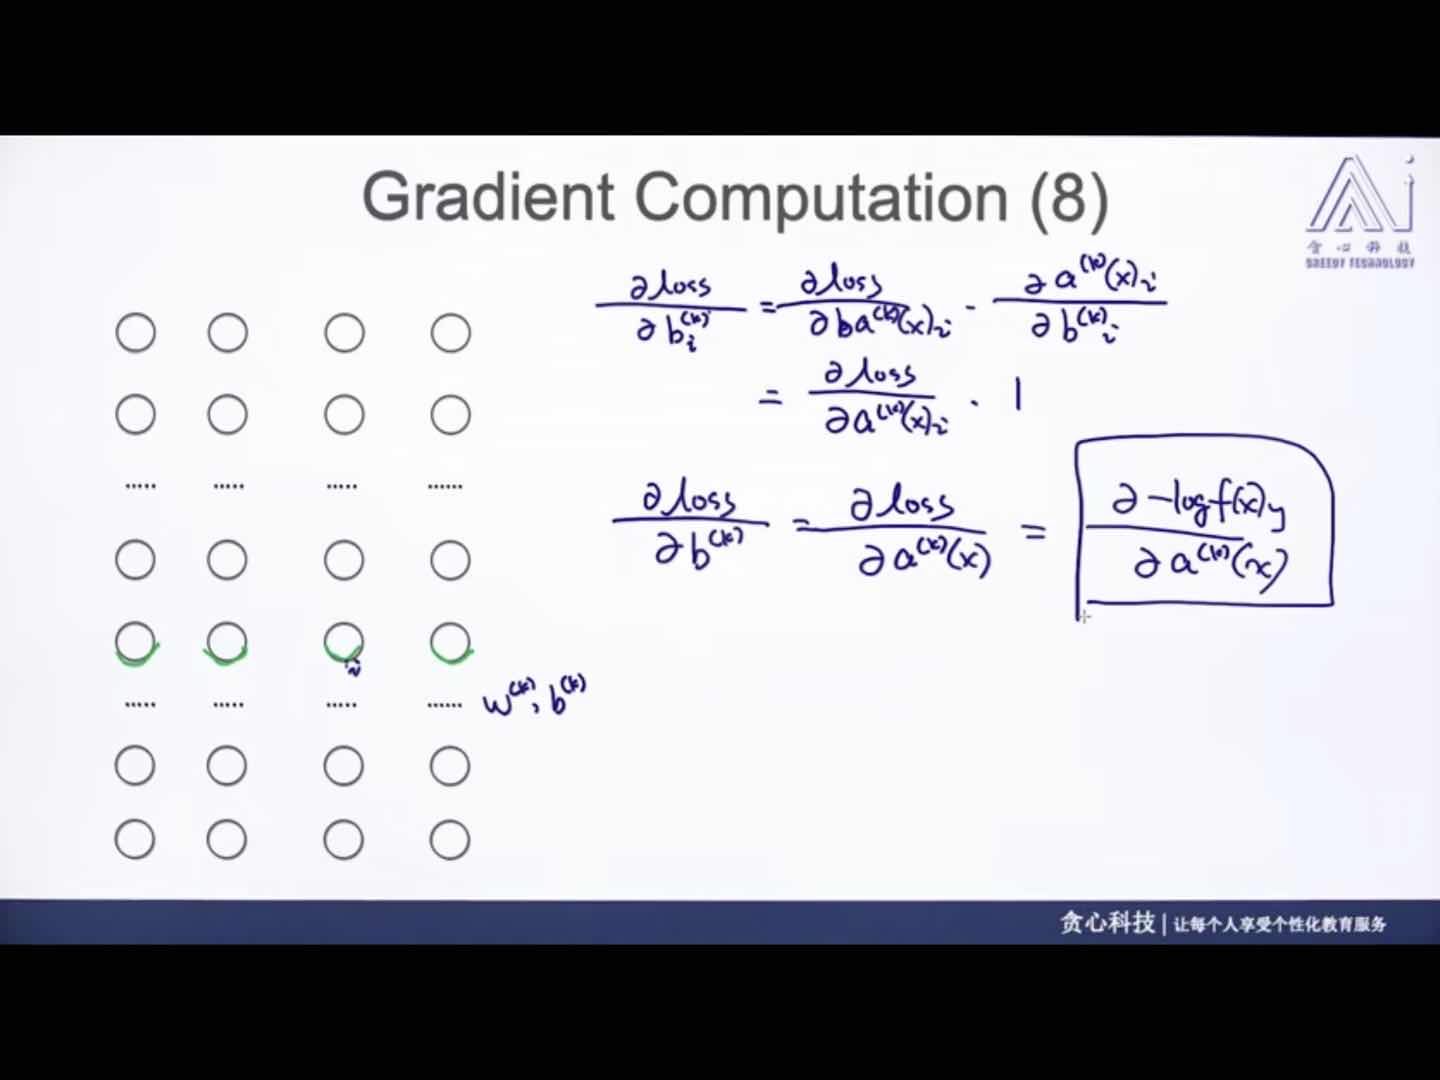 Gradient Computation (8)
贪心科技
GREEDY TECHNOLOGY
∂loss / ∂b_i^(k) = ∂loss / ∂ba^(k)(x)_i · ∂a^(k)(x)_i / ∂b^(k)_i
= ∂loss / ∂a^(k)(x)_i · 1
∂loss / ∂b^(k) = ∂loss / ∂a^(k)(x) = ∂-logf(x)_y / ∂a^(k)(x)
i
w^(k), b^(k)
贪心科技 | 让每个人享受个性化教育服务